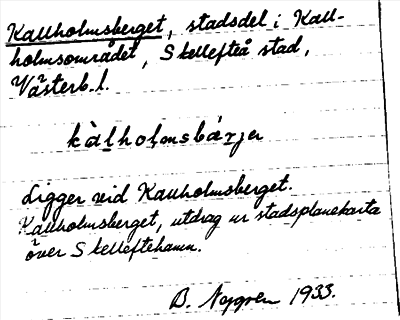 Kallholmsberget, stadsdel i Kall-
holmsområdet, Skellefteå stad,
Västerb. l.
kàlholmsbárjer
Ligger vid Kallholmsberget.
Kallholmsberget, utdrag ur stadsplanekarta
över Skelleftehamn.
B. Nygren 1933.